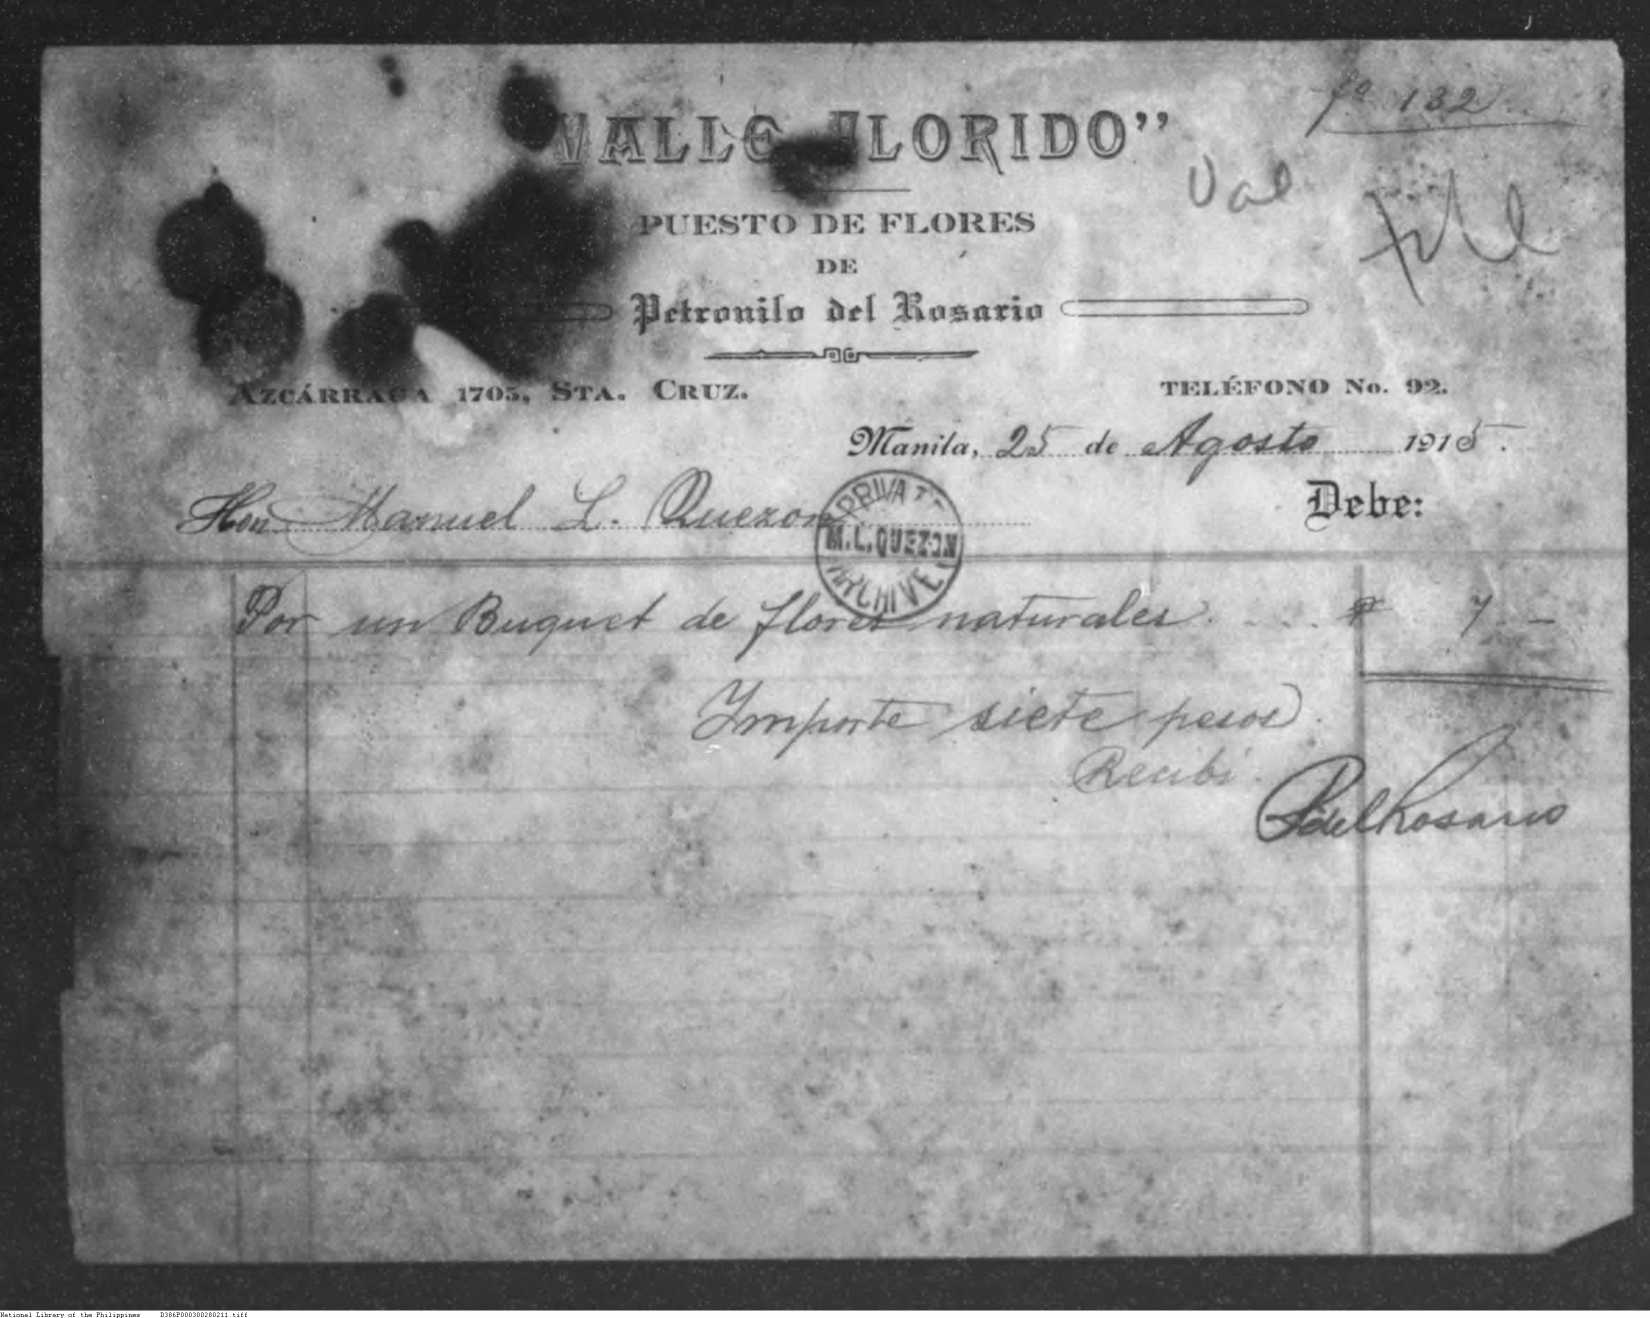 fo 132
"VALLE FLORIDO"
Val
file
PUESTO DE FLORES
DE
Petronilo del Rosario
AZCÁRRAGA 1705, STA. CRUZ.
TELÉFONO No. 92.
Manila, 25 de Agosto 1915.
Hon Manuel L. Quezon
Debe:
PRIVATE
M.L.QUEZON
ARCHIVE
Por un Buquet de flores naturales. . . . ₱ 7 –
Importe siete pesos.
Recibi.
PdelRosario
National Library of the Philippines D386P000300280211.tiff